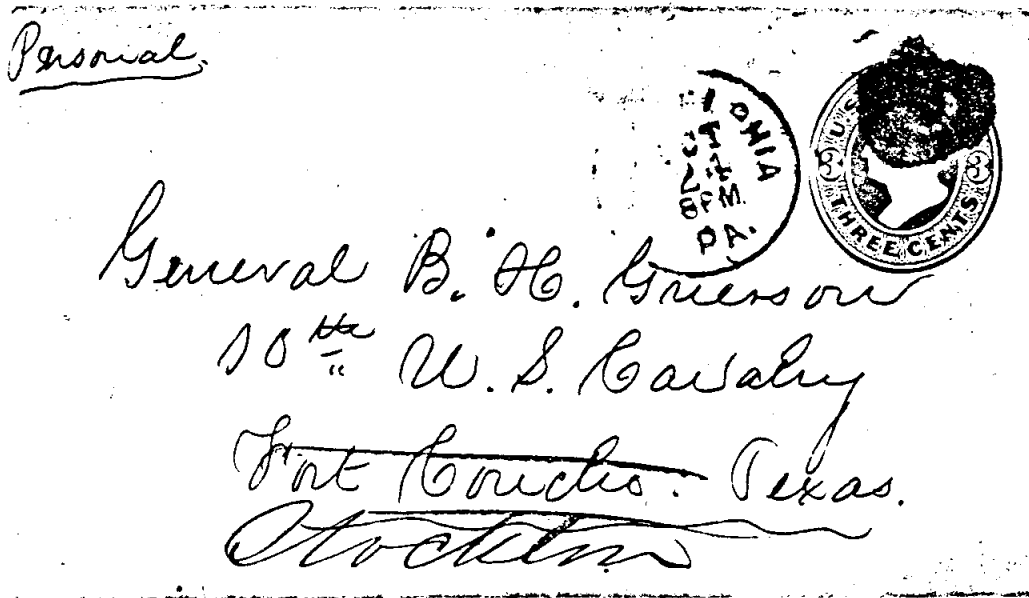 Personal.
U.S.
3 3
THREE CENTS
PA.
8 PM
General B. H. Grierson
10th U. S. Cavalry
Fort Concho. Texas.
Stockton